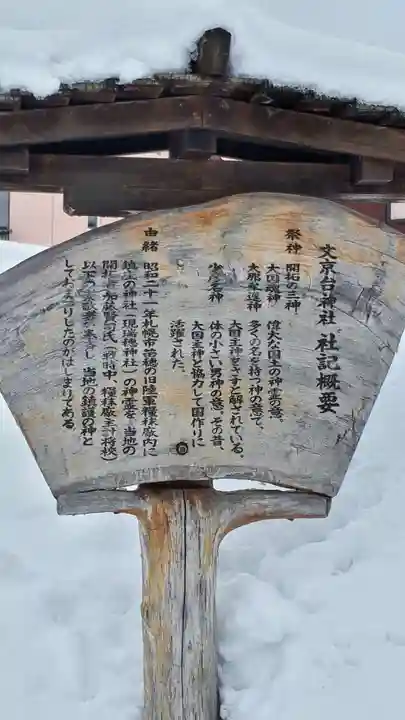 文京台神社 社記概要
祭神 開拓の三神
大国魂神 偉大な国土の神霊の意。
大那牟遅神 多くの名を持つ神の意で、
大国主神をさすと解されている。
少彦名神 体の小さい男神の意。その昔、
大国主神と協力して国作りに
活躍された。
由緒 昭和二十一年札幌市苗穂の旧陸軍糧秣廠内に
鎮座の神社(現瑞穂神社)の神霊を、当地の
開拓者 賢司氏(戦時中、糧秣廠主計将校)
以下 を奉じ、当地の鎮護の神と
しておまつりしたのがはじまりである。